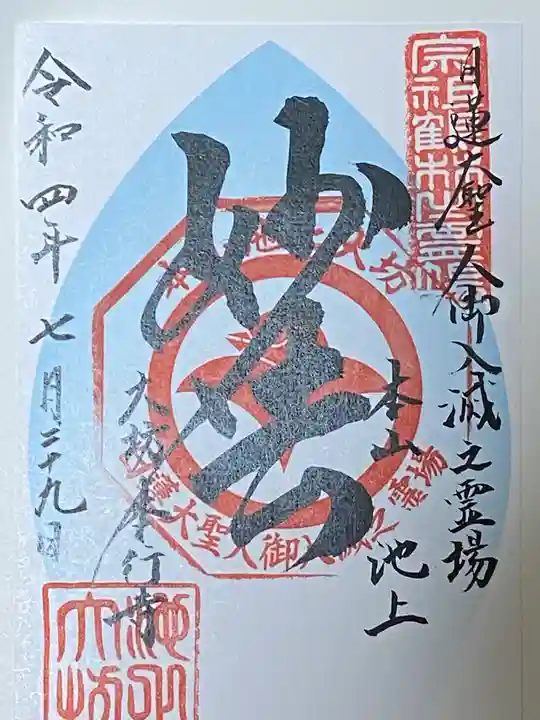 日蓮大聖人御入滅之霊場
宗祖鶴林之霊
本山
池上
妙法
大坊本行寺
令和四年七月二十九日
大聖人御入滅之霊場
池上
大坊